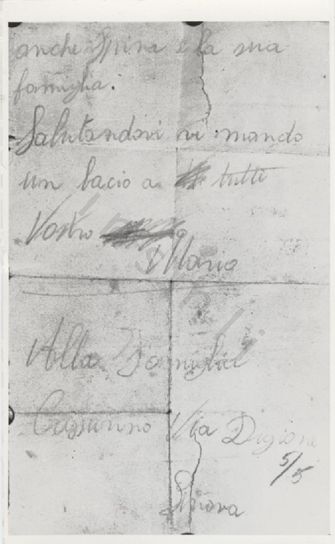 anche Spina e la sua
famiglia.
Salutandovi vi mando
un bacio a tutti
Vostro
Mario
Alla Famiglia
Via Digione
5/5
Genova